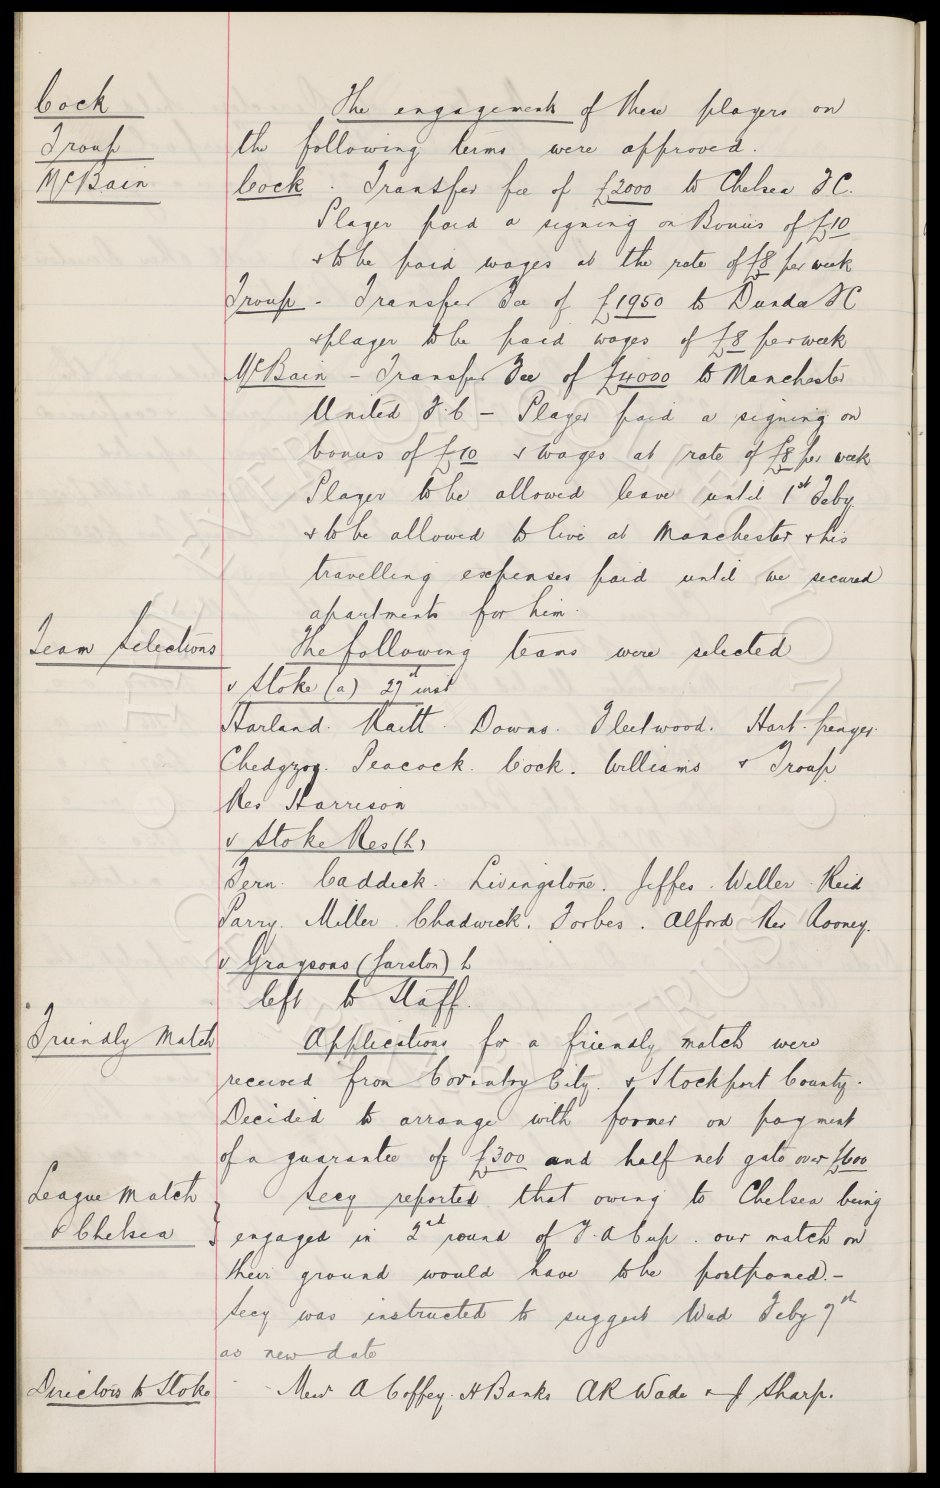 Cock
Troup
McBain
The engagements of these players on
the following terms were approved.
Cock. Transfer fee of £2000 to Chelsea F C.
Player paid a signing on Bonus of £10
& to be paid wages at the rate of £8 per week
Troup - Transfer Fee of £1950 to Dundee F C
& player to be paid wages of £8 per week
McBain - Transfer Fee of £4000 to Manchester
United F. C - Player paid a signing on
bonus of £10 & wages at rate of £8 per week
Player to be allowed leave until 1st Feby.
& to be allowed to live at Manchester & his
travelling expenses paid until we secured
apartments for him.
Team Selections
The following teams were selected
v Stoke (a) 27th inst
Harland. Raitt. Downs. Fleetwood. Hart. Spenger.
Chedgzoy. Peacock. Cock. Williams & Troup
Res Harrison
v Stoke Res (h)
Fern. Caddick. Livingstone. Jeffes. Weller. Reid
Parry. Miller. Chadwick. Forbes. Alford Res Rooney.
v Graysons (Garston) h
left to Staff.
Friendly Match
Applications for a friendly match were
received from Coventry City. & Stockport County.
Decided to arrange with former on payment
of a guarantee of £300 and half net gate over £600
League Match
v Chelsea
Secy reported that owing to Chelsea being
engaged in 2nd round of F. A Cup. our match on
their ground would have to be postponed.-
Secy was instructed to suggest Wed Feby 7th
as new date
Directors to Stoke
Messrs A Coffey. H Banks A R Wade & J Sharp.